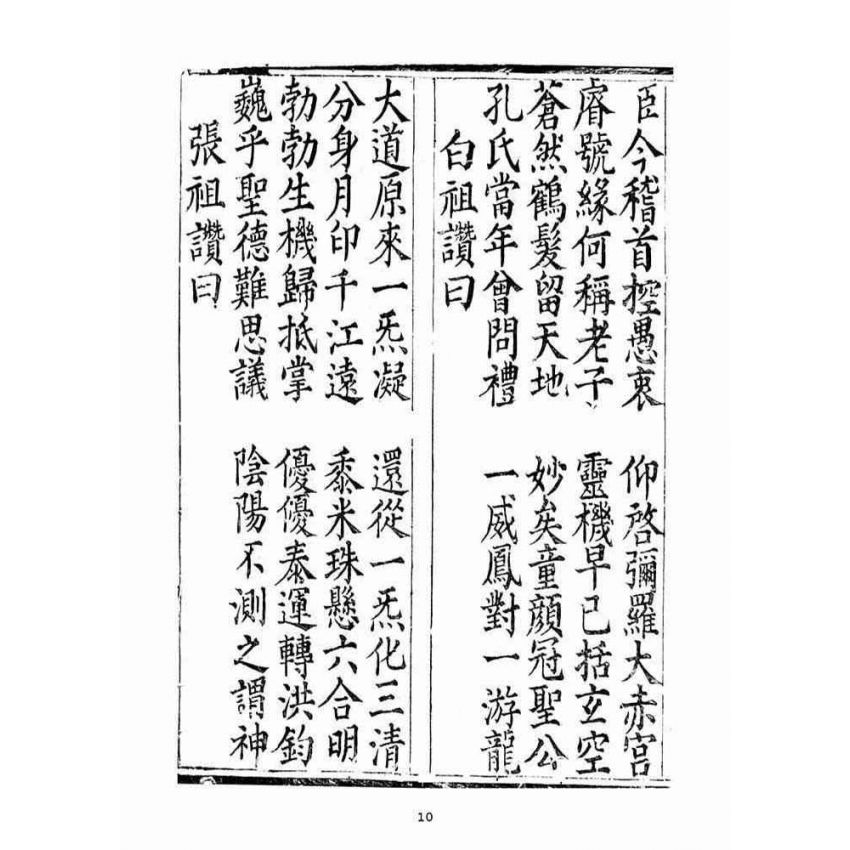 臣今稽首控愚衷　仰啓彌羅大赤宮
睿號緣何稱老子　靈機早已括玄空
蒼然鶴髮留天地　妙矣童顏冠聖公
孔氏當年曾問禮　一威鳳對一游龍
白祖讚曰
大道原來一炁凝　還從一炁化三清
分身月印千江遠　黍米珠懸六合明
勃勃生機歸抵掌　優優泰運轉洪鈞
巍乎聖德難思議　陰陽不測之謂神
張祖讚曰
10